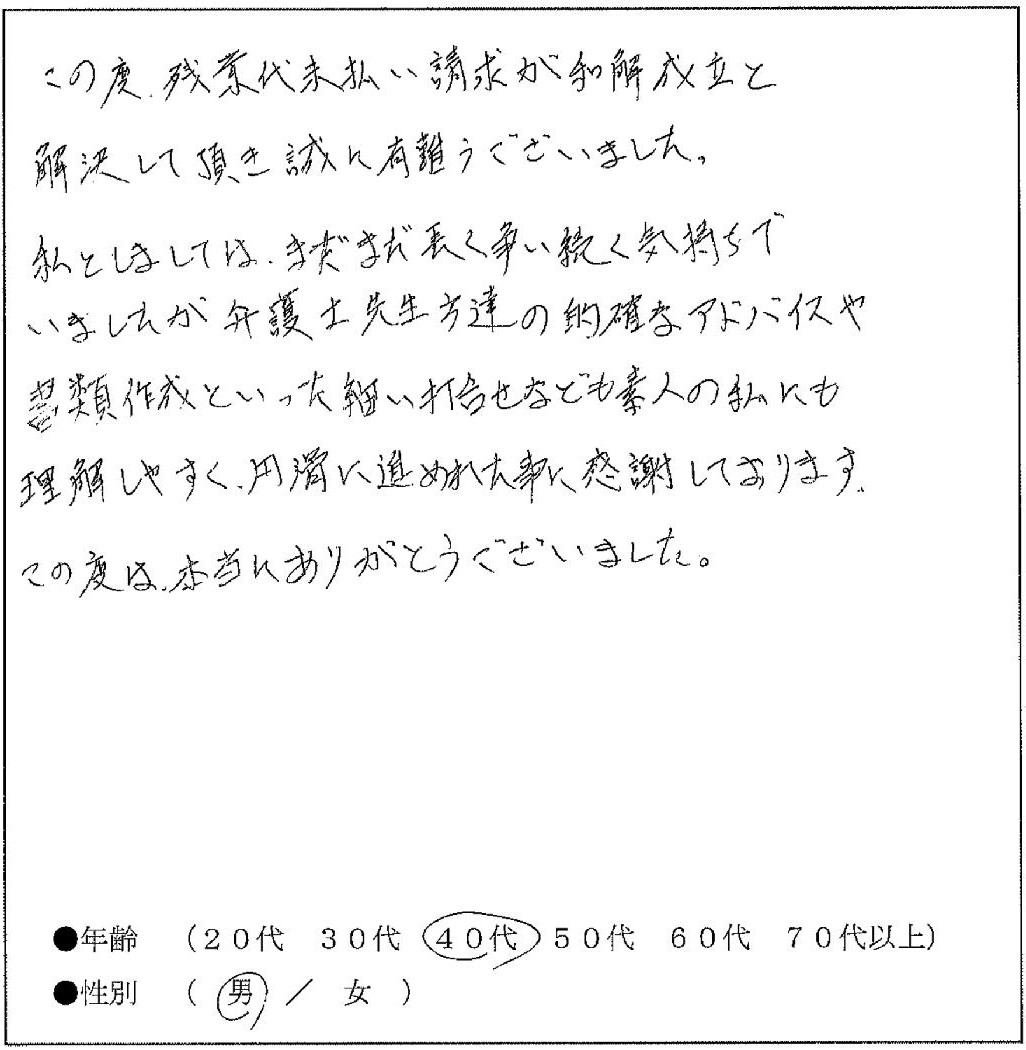 この度、残業代未払い請求が和解成立と
解決して頂き誠に有難うございました。
私としましては、まだまだ長く争い続く気持ちで
いましたが弁護士先生方達の的確なアドバイスや
書類作成といった細い打合せなども素人の私にも
理解しやすく、円滑に進めれた事に感謝しております。
この度は、本当にありがとうございました。
●年齢 （２０代 ３０代 ４０代 ５０代 ６０代 ７０代以上）
●性別 （ 男 ／ 女 ）